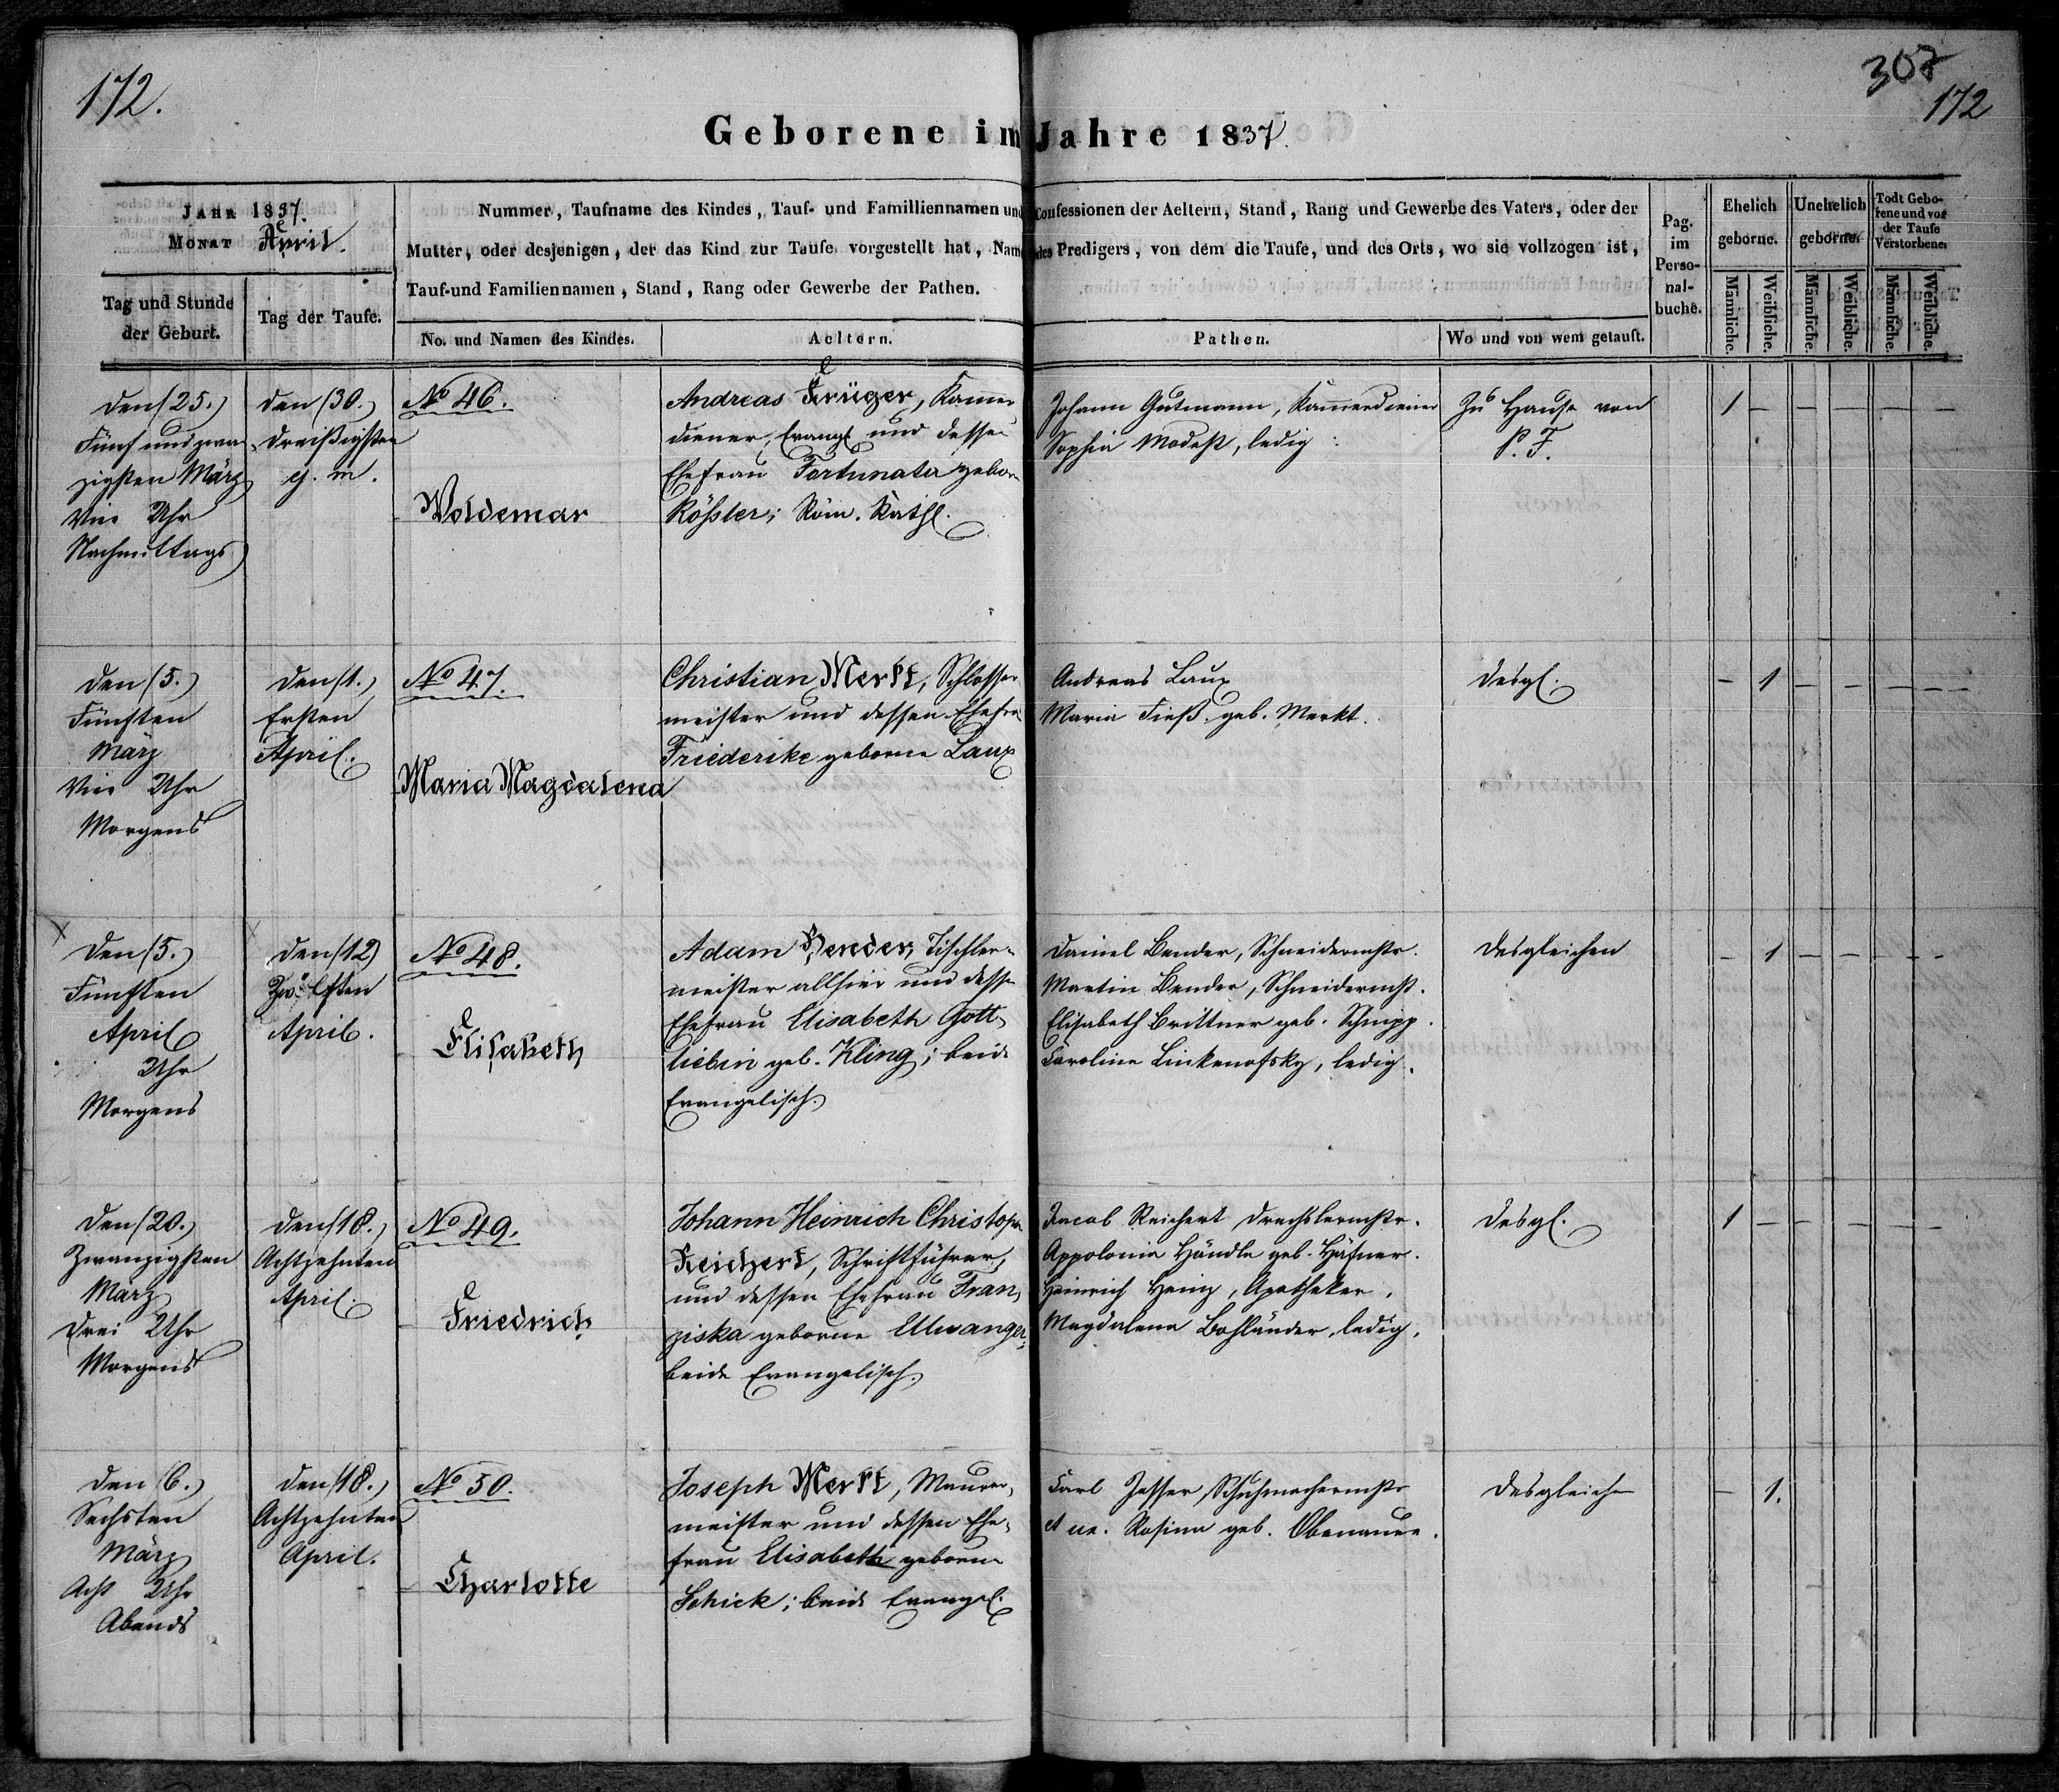 172.
307
172
Geborene im Jahre 1837.
JAHR 1837.
MONAT April.
Tag und Stunde der Geburt.
Tag der Taufe.
Nummer, Taufname des Kindes, Tauf- und Familliennamen und Confessionen der Aeltern, Stand, Rang und Gewerbe des Vaters, oder der
Mutter, oder desjenigen, der das Kind zur Taufe vorgestellt hat, Name des Predigers, von dem die Taufe, und des Orts, wo sie vollzogen ist,
Tauf-und Familiennamen, Stand, Rang oder Gewerbe der Pathen.
No. und Namen des Kindes.
Aeltern.
Pathen.
Wo und von wem getauft.
Pag. im Perso-nal-buche.
Ehelich geborne.
Unehelich geborne.
Todt Gebo-rene und vor der Taufe Verstorbene.
Männliche. Weibliche. Männliche. Weibliche. Männliche. Weibliche.
Den (25.)
Fünf und zwan
zigsten März
Vier Uhr
Nachmittags
den (30.)
dreißigsten
ej. m.
No 46.
Woldemar
Andreas Krüger, Kammer
diener, Evangl. und dessen
Ehefrau Fortunata gebor.
Rößler; Röm. Kathl.
Johann Gutmann, Kammerdiener
Sophia Modest, ledig
Zu Hause von
P. F.
1 – – – – –
Den (5.)
Fünften
März
Vier Uhr
Morgens
Den (1.)
Ersten
April.
No 47.
Maria Magdalena
Christian Merkt, Schlosser
meister und dessen Ehefrau
Friederike geborne Laux
Andreas Laux
Maria Fieß geb. Merkt.
Desgl.
– 1 – – – –
x
Den (5.)
Fünften
April
Uhr
Morgens
Den (12)
Zwölften
April.
No 48.
Elisabeth
Adam Bender, Tischler-
meister allhier und dessen
Ehefrau Elisabeth Gott-
liebin geb. Kling; beide
Evangelisch.
Daniel Bender, Schneidermstr.
Martin Bender, Schneidermst.
Elisabeth Brittner geb. Schnipp.
Caroline Linkenofsky, ledig.
Desgleichen
– 1 – – – –
Den (20.)
Zwanzigsten
März
Drei Uhr
Morgens
Den (18.)
Achtzehnten
April.
No 49.
Friedrich
Johann Heinrich Christoph
Reichert, Schriftführer,
und dessen Ehefrau Fran-
ziska geborne Ellwanger;
beide Evangelisch.
Jacob Reichert Drechslermstr.
Appolonia Händle geb. Häfner.
Heinrich Heinz, Apotheker,
Magdalena Bohländer, ledig.
Desgl.
1 – – – – –
Den (6.)
Sechsten
März
Acht Uhr
Abends
Den (18.)
Achtzehnten
April.
No 50.
Charlotte
Joseph Merkt, Maurer-
meister und dessen Ehe-
frau Elisabeth geborne
Schick; beide Evangel.
Carl Jesser, Schuhmachermstr
et ux. Rosina geb. Obenauer.
Desgleichen
– 1.